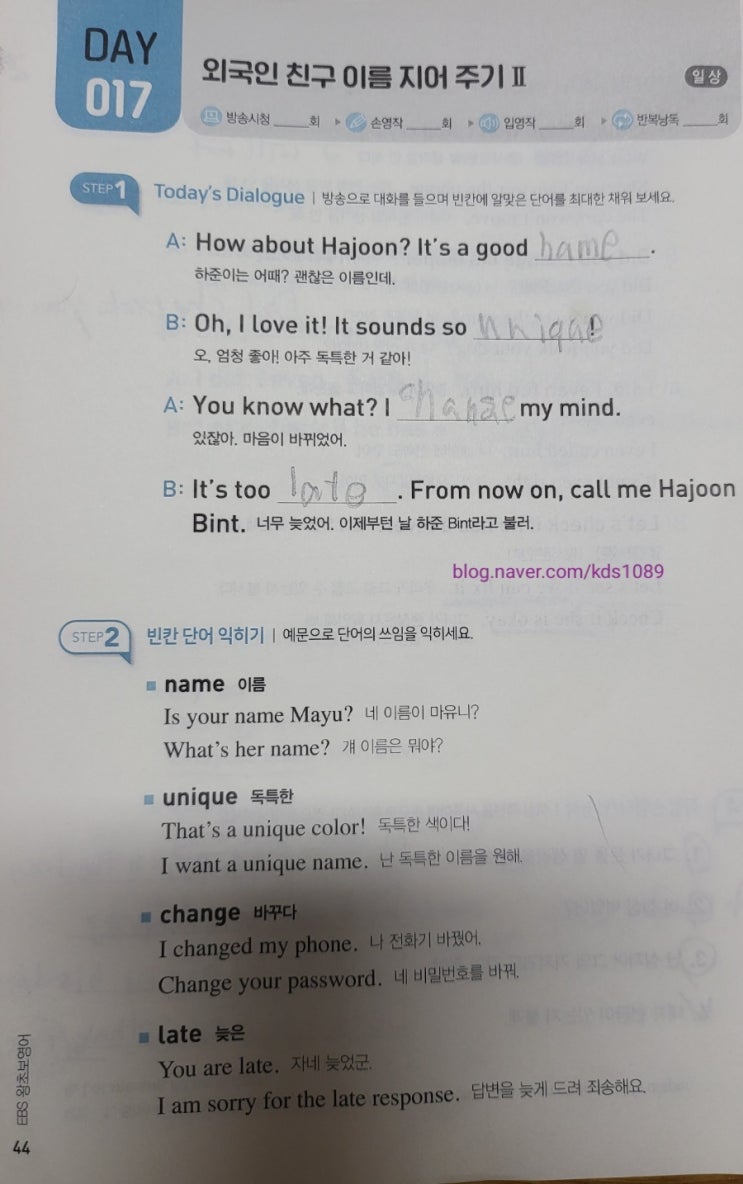 DAY
017
외국인 친구 이름 지어 주기 Ⅱ
일상
방송시청 _____회 ▸ 손영작 _____회 ▸ 입영작 _____회 ▸ 반복낭독 _____회
STEP 1 Today's Dialogue | 방송으로 대화를 들으며 빈칸에 알맞은 단어를 최대한 채워 보세요.
A: How about Hajoon? It's a good name.
하준이는 어때? 괜찮은 이름인데.
B: Oh, I love it! It sounds so unique!
오, 엄청 좋아! 아주 독특한 거 같아!
A: You know what? I change my mind.
있잖아. 마음이 바뀌었어.
B: It's too late. From now on, call me Hajoon
Bint. 너무 늦었어. 이제부턴 날 하준 Bint라고 불러.
blog.naver.com/kds1089
STEP 2 빈칸 단어 익히기 | 예문으로 단어의 쓰임을 익히세요.
■ name 이름
Is your name Mayu? 네 이름이 마유니?
What's her name? 걔 이름은 뭐야?
■ unique 독특한
That's a unique color! 독특한 색이다!
I want a unique name. 난 독특한 이름을 원해.
■ change 바꾸다
I changed my phone. 나 전화기 바꿨어.
Change your password. 네 비밀번호를 바꿔.
■ late 늦은
You are late. 자네 늦었군.
I am sorry for the late response. 답변을 늦게 드려 죄송해요.
EBS 왕초보영어
44